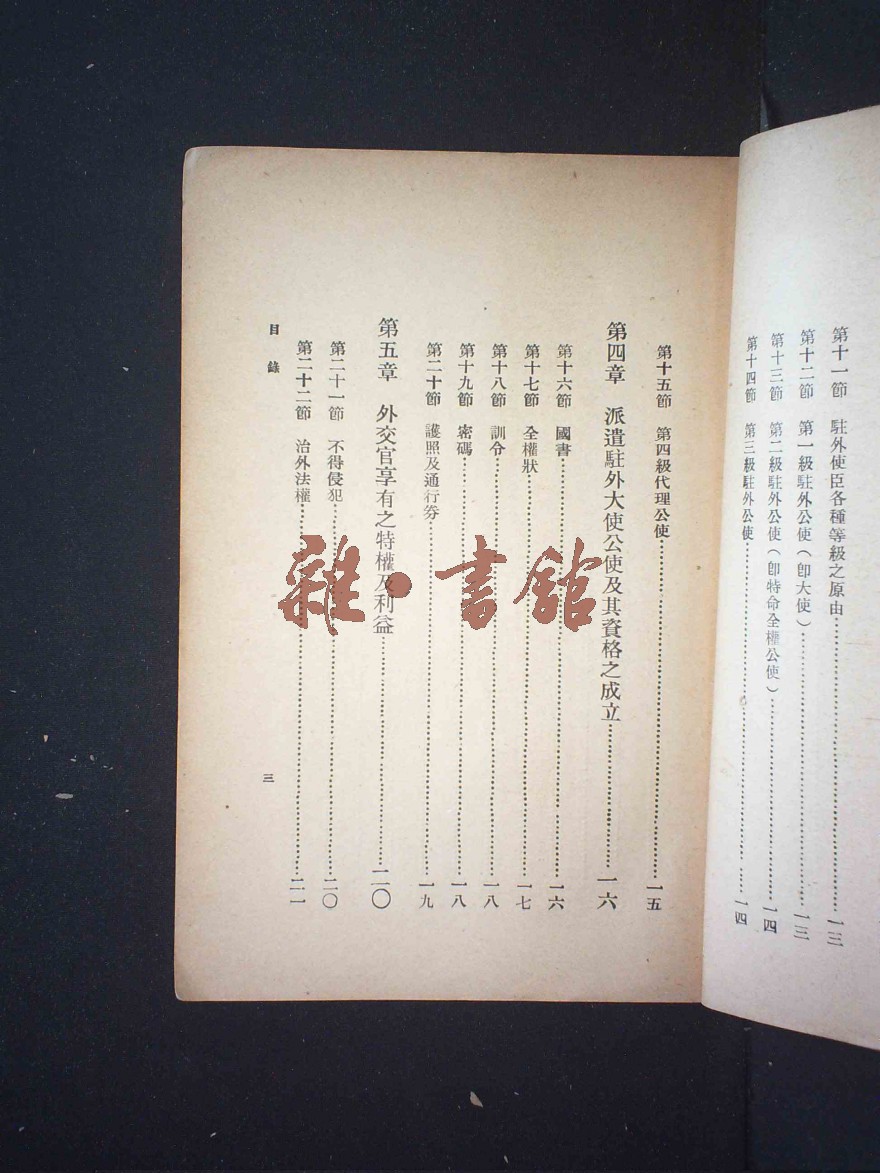 第十一節　駐外使臣各種等級之原由……一三
第十二節　第一級駐外公使（卽大使）……一三
第十三節　第二級駐外公使（卽特命全權公使）……一四
第十四節　第三級駐外公使……一四
第十五節　第四級代理公使……一五
第四章　派遣駐外大使公使及其資格之成立……一六
第十六節　國書……一六
第十七節　全權狀……一七
第十八節　訓令……一八
第十九節　密碼……一八
第二十節　護照及通行券……一九
第五章　外交官享有之特權及利益……二〇
第二十一節　不得侵犯……二〇
第二十二節　治外法權……二一
目錄
三
雜·書館